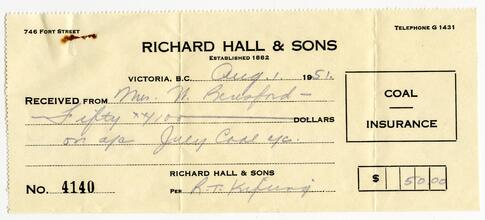 746 FORT STREET
TELEPHONE G 1431
RICHARD HALL & SONS
ESTABLISHED 1882
VICTORIA, B.C. Aug. 1. 1951.
RECEIVED FROM Mrs. W. Beresford
Fifty DOLLARS
on a/c July Coal a/c.
COAL
INSURANCE
RICHARD HALL & SONS
NO. 4140
PER R. T.
$ 50.00